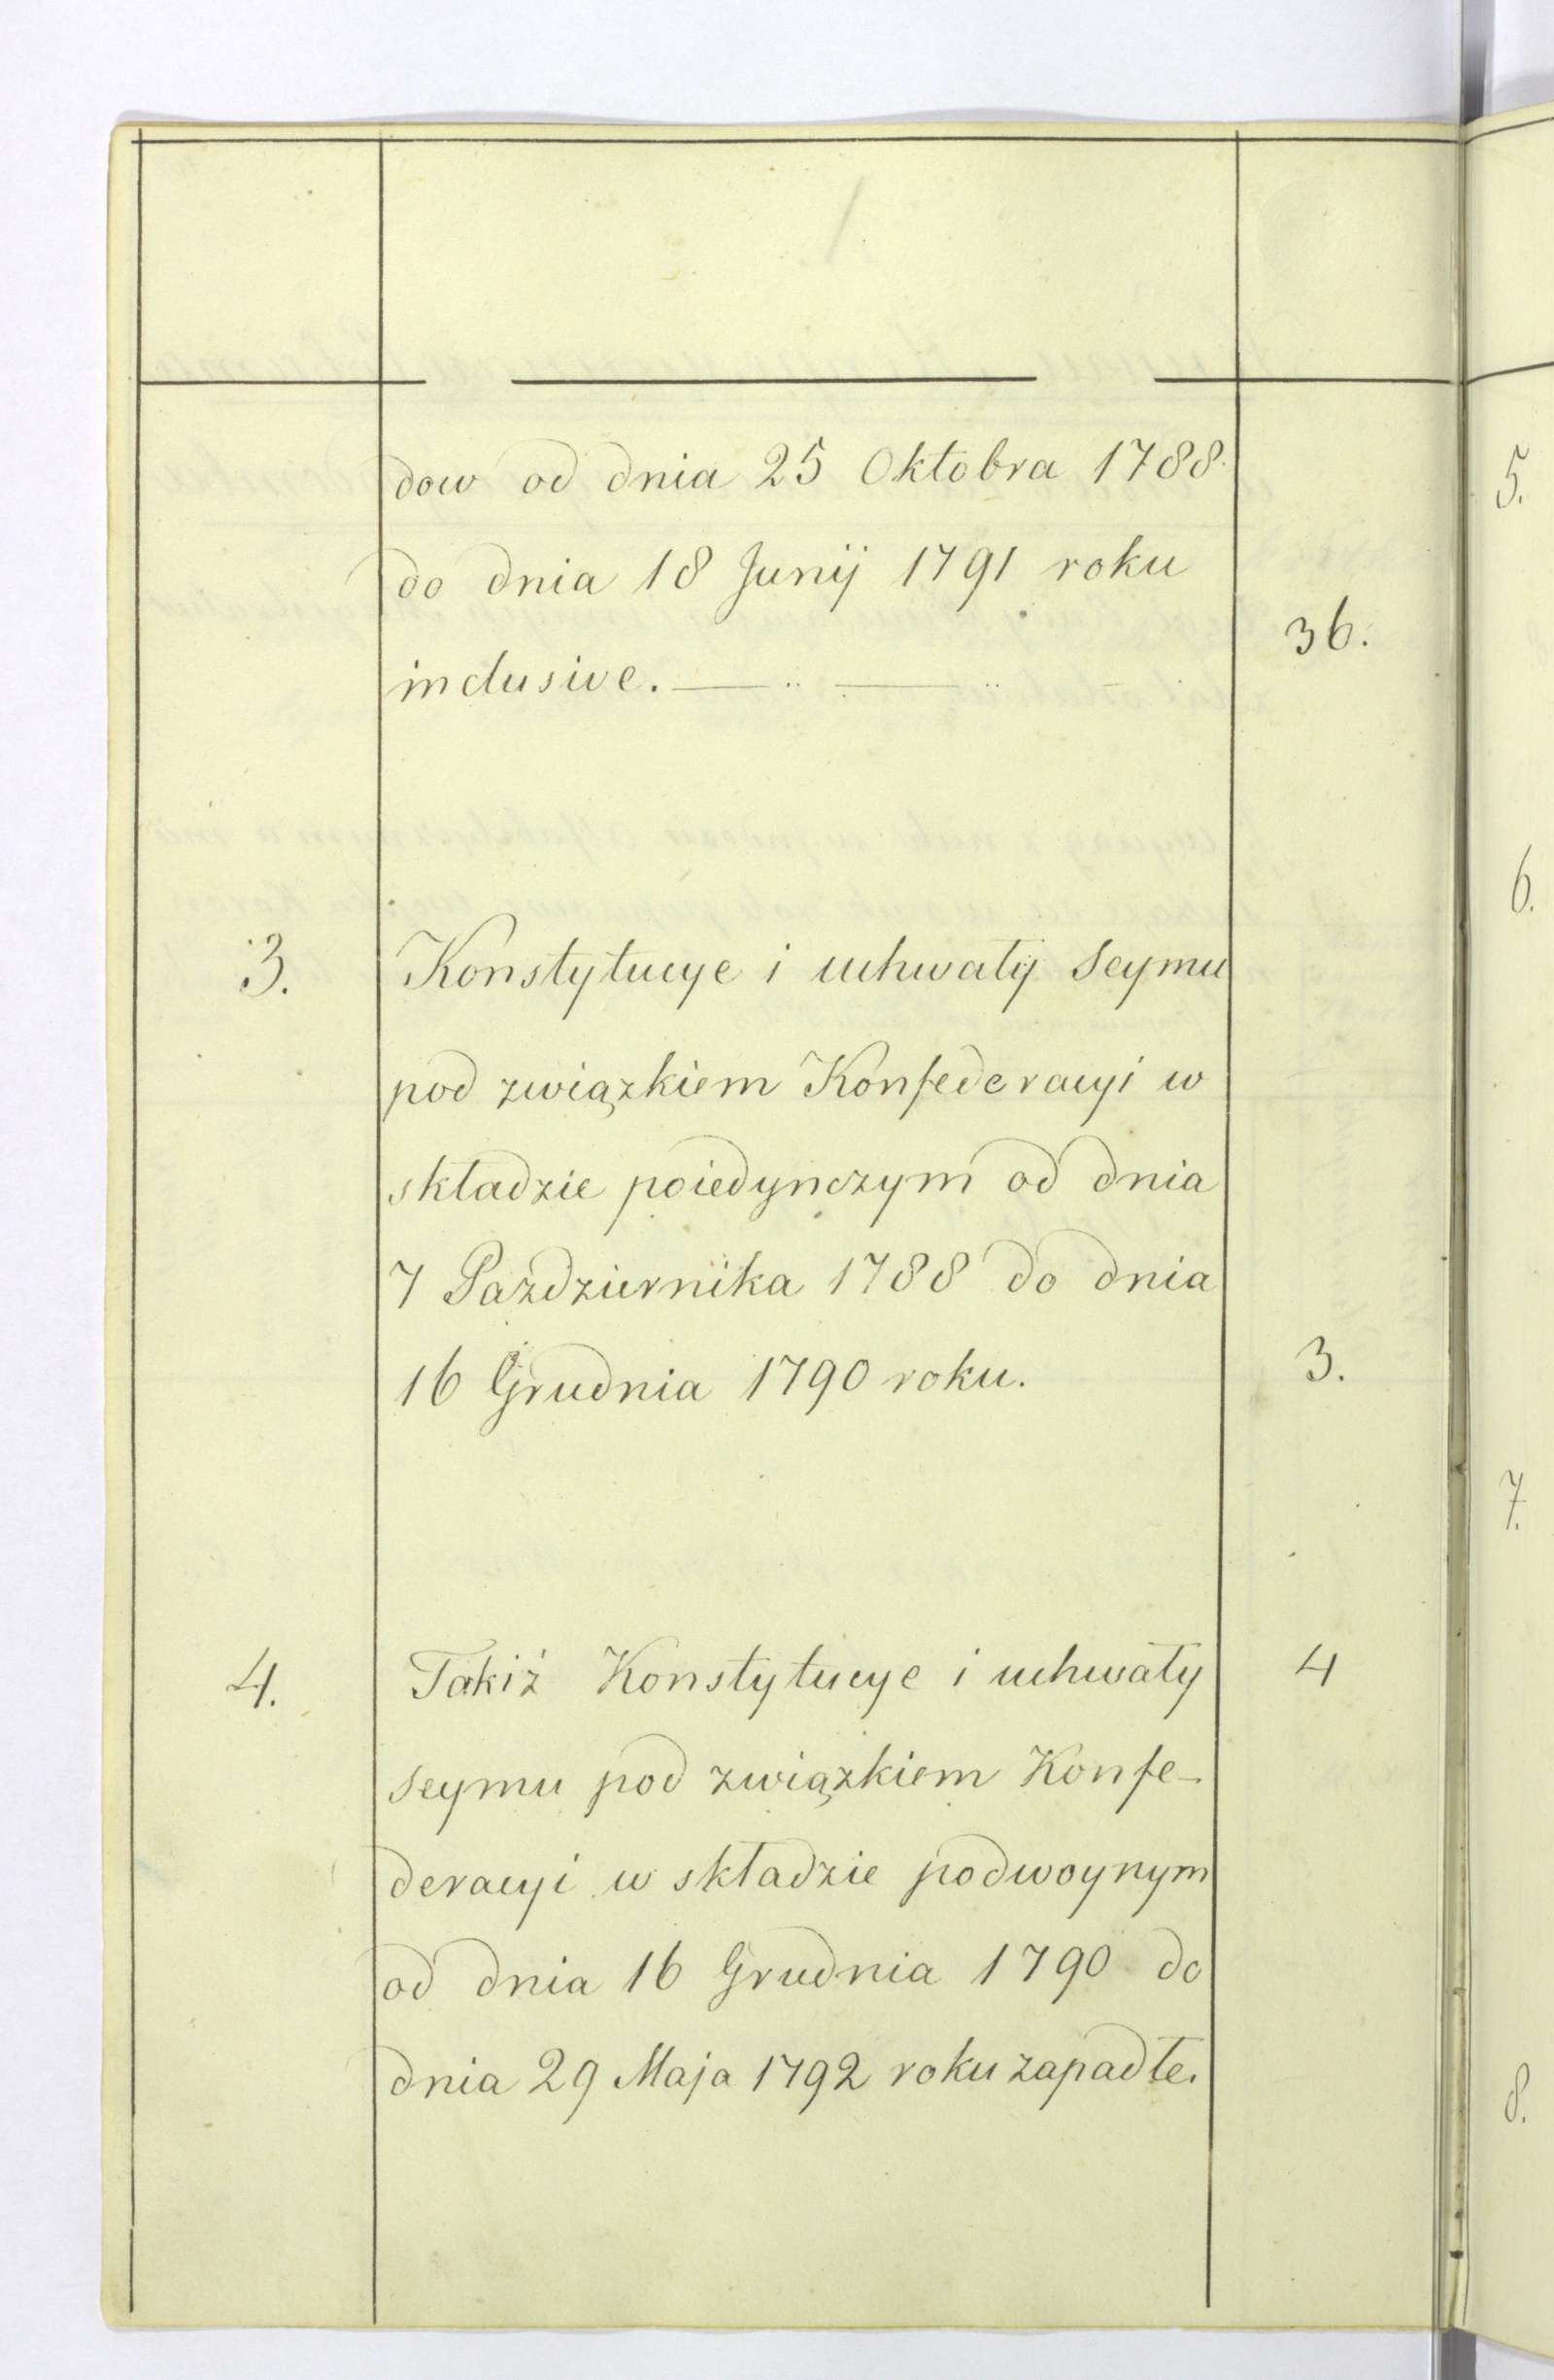 dow od dnia 25 Oktobra 1788.
do dnia 18 Junij 1791 roku
36.
inclusive. — .. — ..
3. Konstytucye i uchwały Seymu
pod związkiem Konfederacyi w
składzie poiedynczym od dnia
7 Pazdziernika 1788 do dnia
16 Grudnia 1790 roku. 3.
4. Takiż Konstytucye i uchwały 4
seymu pod związkiem Konfe-
deracyi w składzie podwoynym
od dnia 16 Grudnia 1790 do
dnia 29 Maja 1792 roku zapadłe.
5.
6.
7.
8.